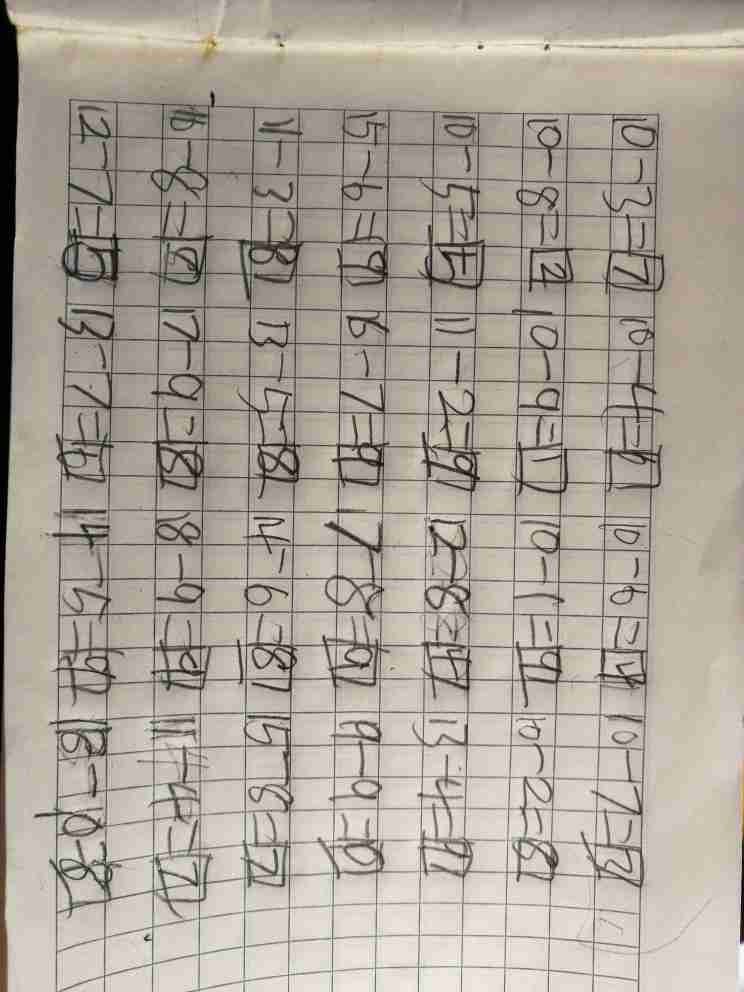 10-3=7 10-4=6 10-6=4 10-7=3
10-8=2 10-9=1 10-1=9 10-2=8
10-5=5 11-2=9 12-8=4 13-4=9
15-6=9 16-7=9 17-8=9 9-9=0
11-3=8 13-5=8 14-6=8 15-8=7
16-8=8 17-9=8 18-9=9 11-4=7
12-7=5 13-7=6 14-5=9